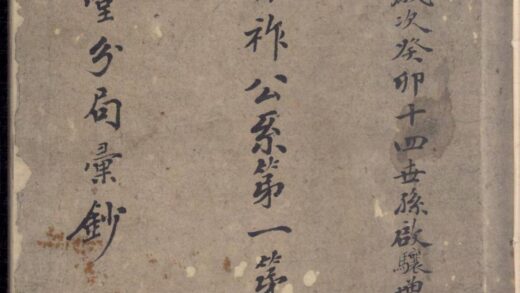 歲次癸卯十四世孫啟驤增
祚公系第一第
堂分局彙鈔